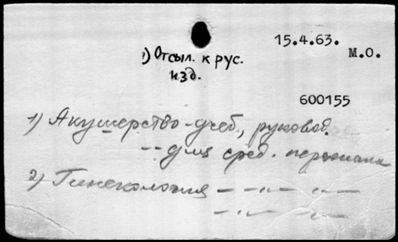 15.4.63.
М.О.
1) Отсыл. к рус.
изд.
600155
1) Акушерство – учеб., руковод.
-"- для сред. персонала
2) Гинекология – -"- -"-
-"- -"-